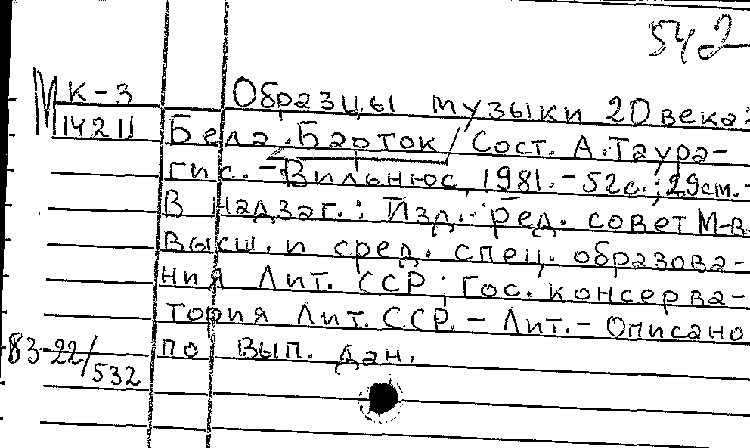 542
М К-3
14211
Образцы музыки 20 века:
Бела Барток / Сост. А. Таура-
гис. - Вильнюс, 1981. - 52с.; 29см. -
В надзаг.: Изд.-ред. совет М-ва
высш. и сред. спец. образова-
ния Лит. ССР; Гос. консерва-
тория Лит. ССР. - Лит. - Описано
по вып. дан.
83-22/
532